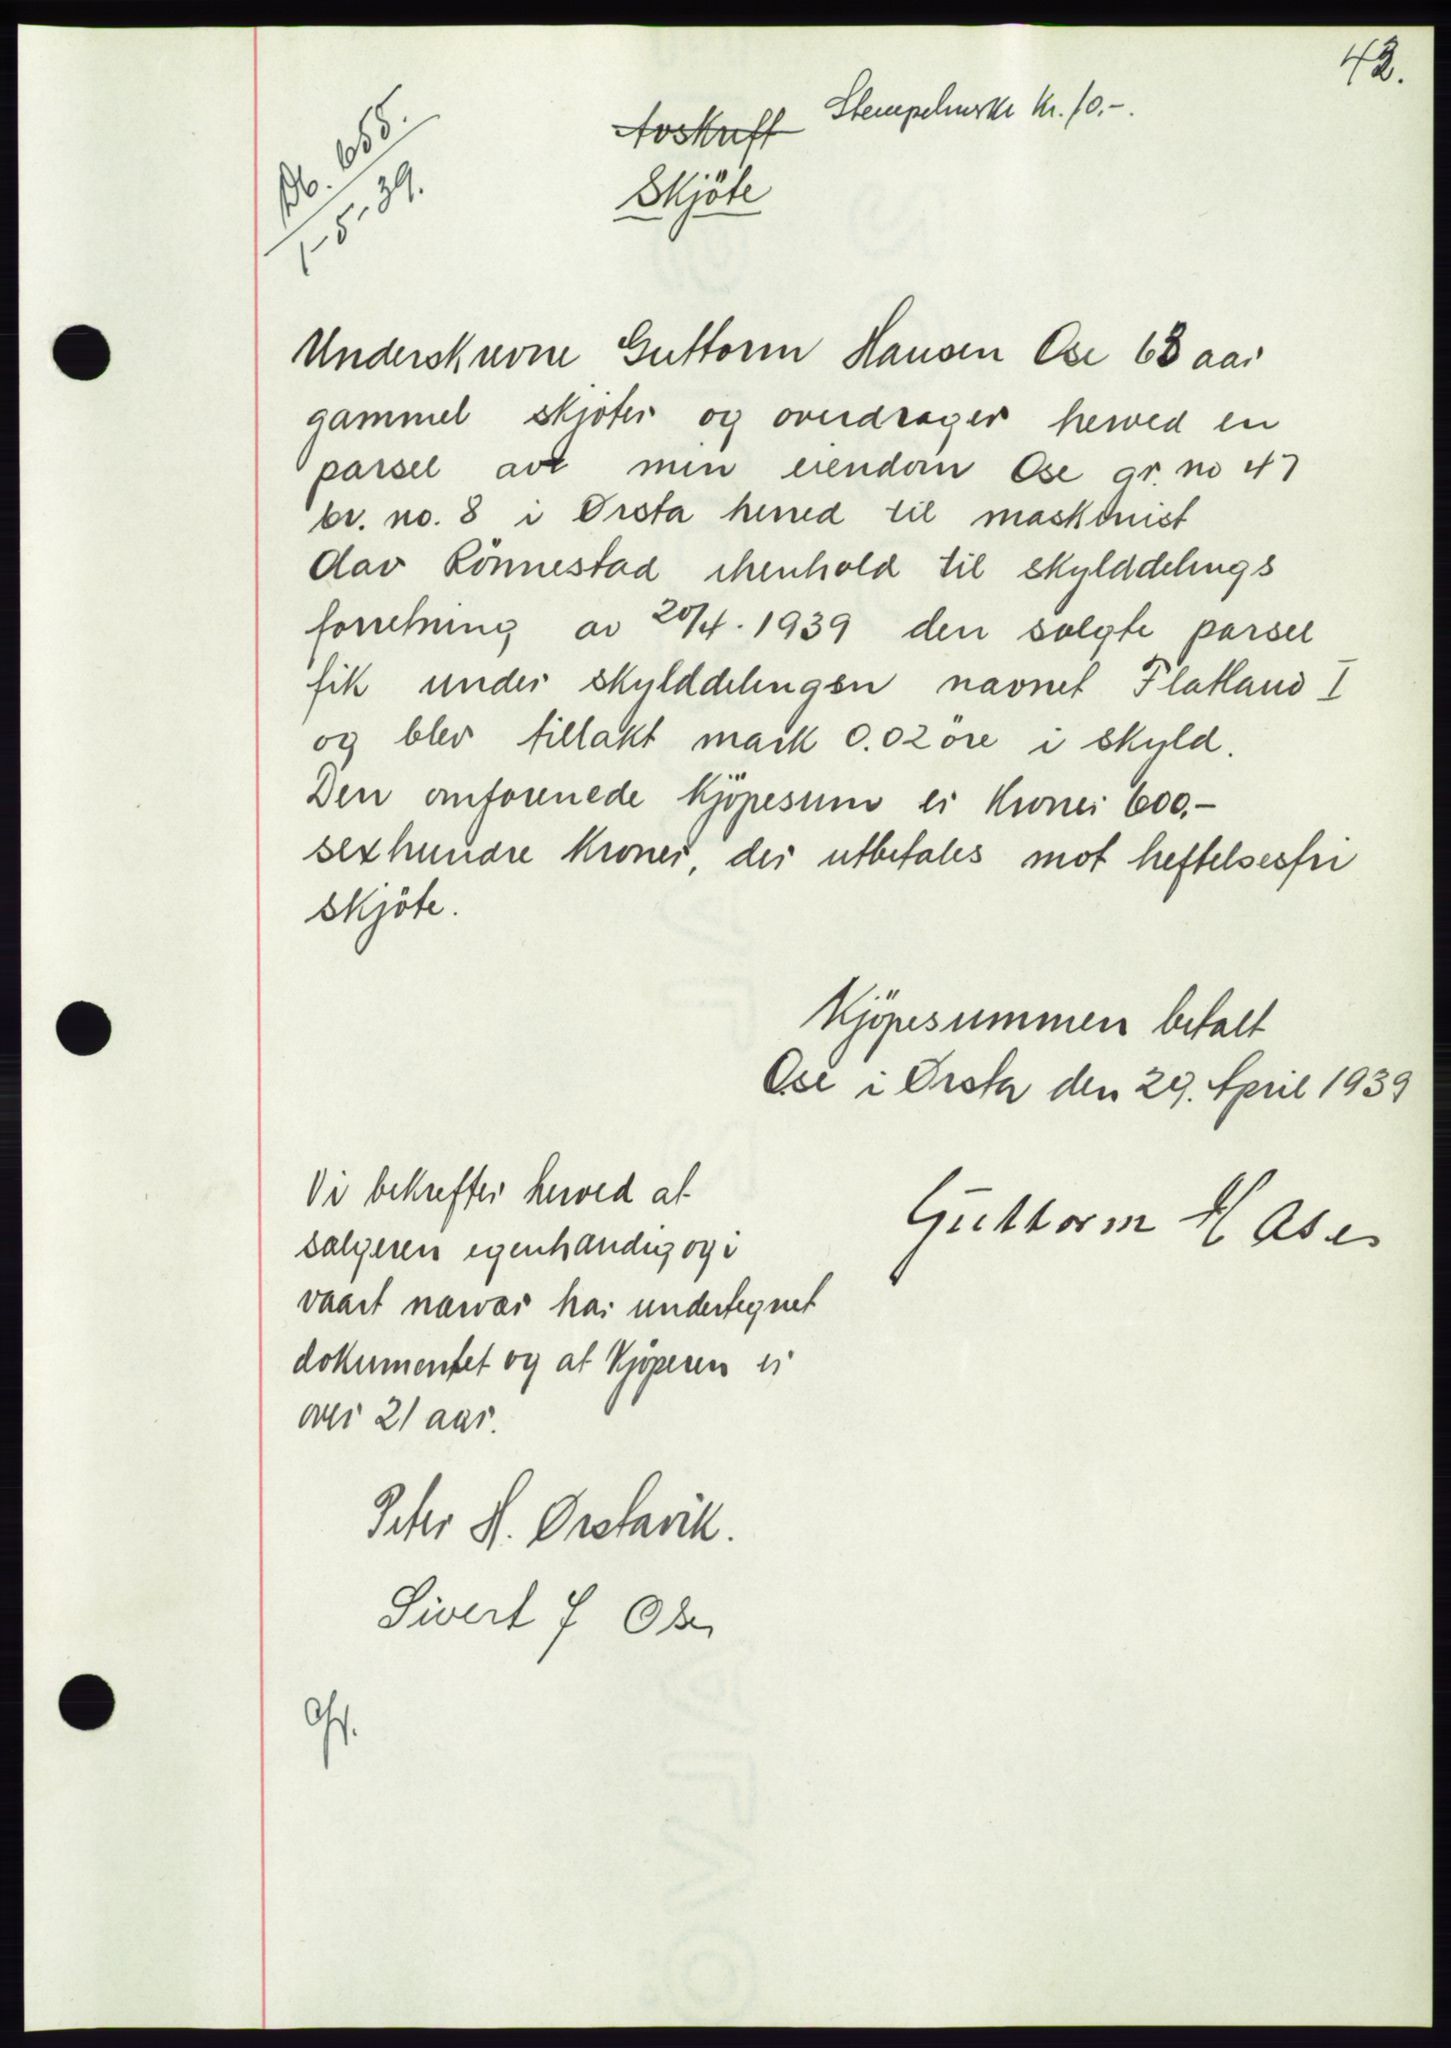 42.
Stempelmerke Kr. 10.-.
Db. 658.
1-5-39.
Avskrift
Skjöte
Underskrevne Guttorm Hansen Ose 63 aar
gammel skjöter og overdrager herved en
parsel av min eiendom Ose gr. no 47
br. no. 8 i Ørsta herred til maskinist
Olav Rönnestad ihenhold til skylddelings
forretning av 20/4. 1939 den solgte parsel
fik under skylddelingen navnet Flatland I
og blev tillakt mark 0.02 öre i skyld.
Den omforenede Kjöpesum er Kroner 600,-
sexhundre Kroner, der utbetales mot heftelsesfri
skjöte.
Kjöpesummen betalt
Ose i Ørsta den 29. April 1939
Guttorm H Ose
Vi bekrefter herved at
sælgeren egenhændig og i
vaart nærvær har undertegnet
dokumentet og at Kjöperen er
over 21 aar.
Peter H. Ørstavik.
Sivert J Ose